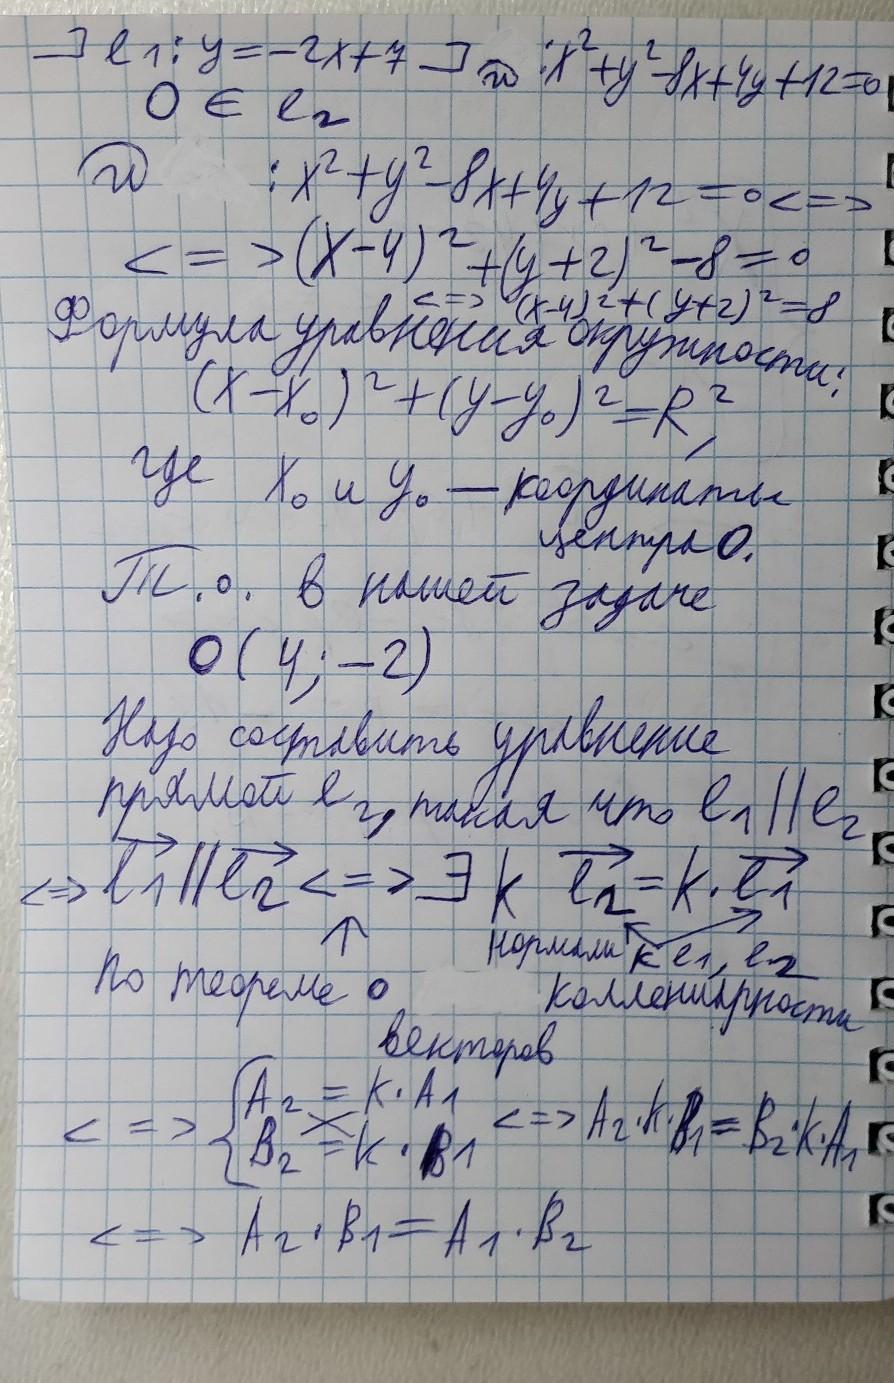 ] l1: y = -2x+7 ] w: x²+y²-8x+4y+12=0
O ∈ l2
w : x²+y²-8x+4y+12=0 <=>
<=> (x-4)²+(y+2)²-8=0
<=> (x-4)²+(y+2)²=8
Формула уравнения окружности:
(x-x₀)²+(y-y₀)²=R²,
где x₀ и y₀ — координаты
центра O.
Т.о. в нашей задаче
O(4;-2)
Надо составить уравнение
прямой l2, такая что l1||l2
<=> l1→||l2→ <=> ∃ k l2→=k·l1→
↑ нормали к l1, l2
по теореме о колленеарности
векторов
<=> { A2 = k·A1
B2 = k·B1 <=> A2·k·B1=B2·k·A1
<=> A2·B1=A1·B2